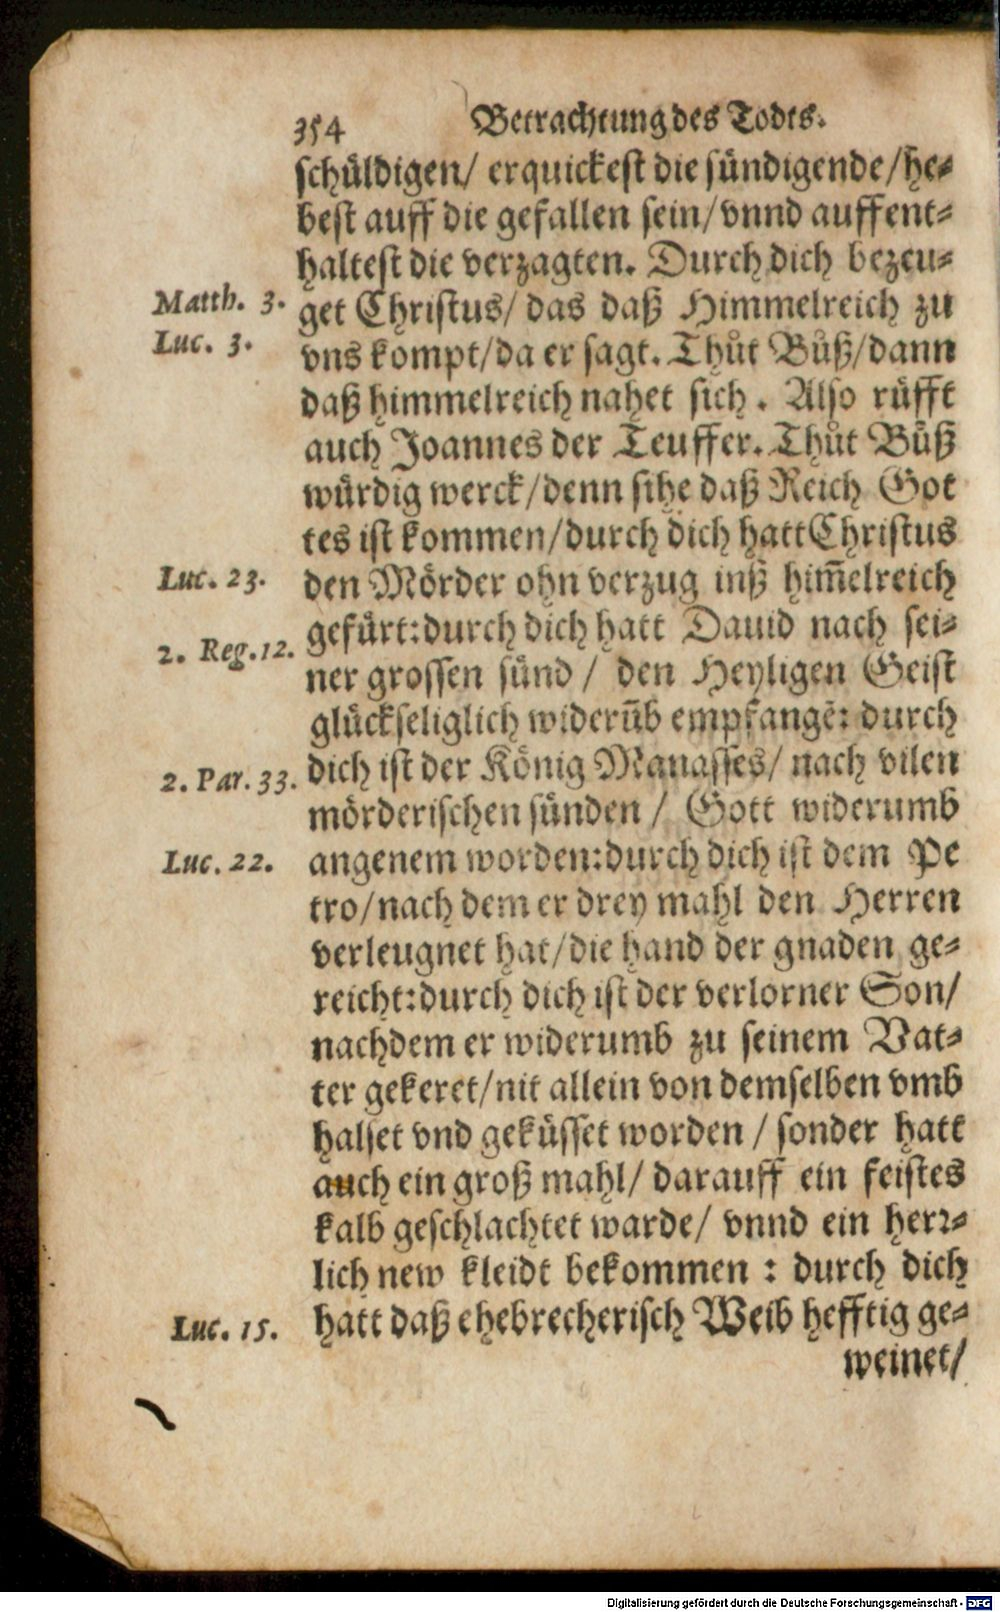 354 Betrachtung des Todts.
schůldigen/ erquickest die sůndigende/he-
best auff die gefallen sein/vnnd auffent-
haltest die verzagten. Durch dich bezeu-
Matth. 3. get Christus/ das daß Himmelreich zu
Luc. 3. vns kompt/da er sagt. Thůt Bůß/dann
daß himmelreich nahet sich. Also růfft
auch Joannes der Teuffer. Thůt Bůß
wůrdig werck/denn sihe daß Reich Got
tes ist kommen/durch dich hatt Christus
Luc. 23. den Mörder ohn verzug inß him̃elreich
gefůrt:durch dich hatt Dauid nach sei-
2. Reg. 12. ner grossen sůnd/ den Heyligen Geist
glůckseliglich widerũb empfangẽ: durch
2. Par. 33. dich ist der König Manasses/ nach vilen
mörderischen sůnden/ Gott widerumb
Luc. 22. angenem worden:durch dich ist dem Pe
tro/nach dem er drey mahl den Herren
verleugnet hat/die hand der gnaden ge-
reicht:durch dich ist der verlorner Son/
nachdem er widerumb zu seinem Vat-
ter gekeret/nit allein von demselben vmb
halset vnd geküsset worden/ sonder hatt
auch ein groß mahl/ darauff ein feistes
kalb geschlachtet warde/ vnnd ein herr-
lich new kleidt bekommen: durch dich
Luc. 15. hatt daß ehebrecherisch Weib hefftig ge-
weinet/
Digitalisierung gefördert durch die Deutsche Forschungsgemeinschaft - DFG